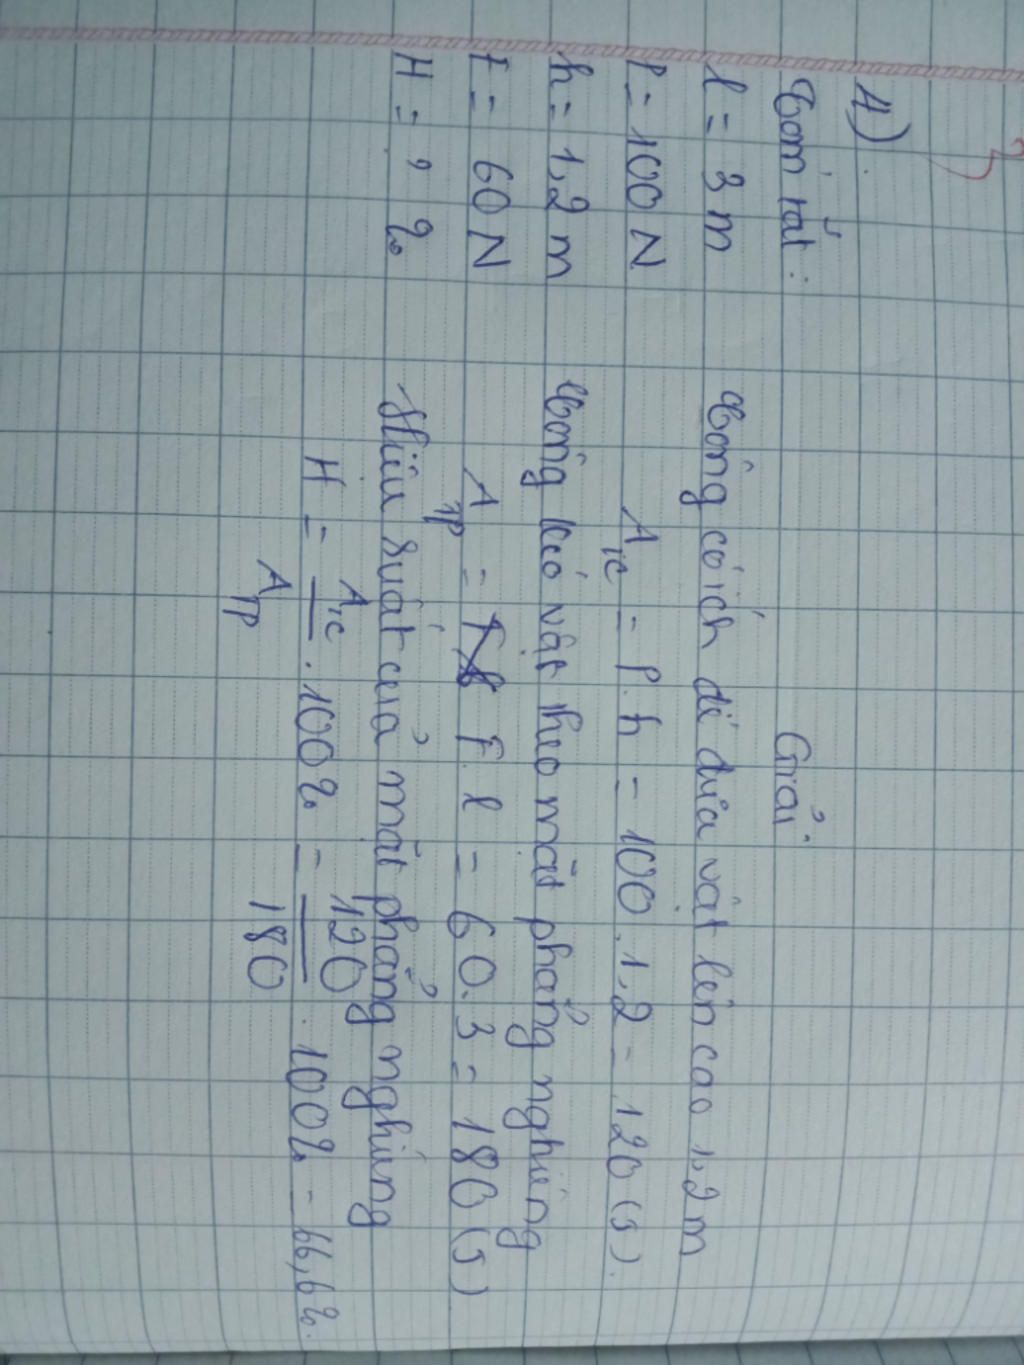 4)
Tóm tắt:
l = 3 m
P = 100 N
h = 1,2 m
F = 60 N
H = ? %
Giải
Công có ích để đưa vật lên cao 1,2 m
Aic = P.h = 100.1,2 = 120 (J).
Công kéo vật theo mặt phẳng nghiêng
Atp = F.l = 60.3 = 180 (J)
Hiệu suất của mặt phẳng nghiêng
H = Aic / Atp . 100% = 120 / 180 . 100% = 66,6%.